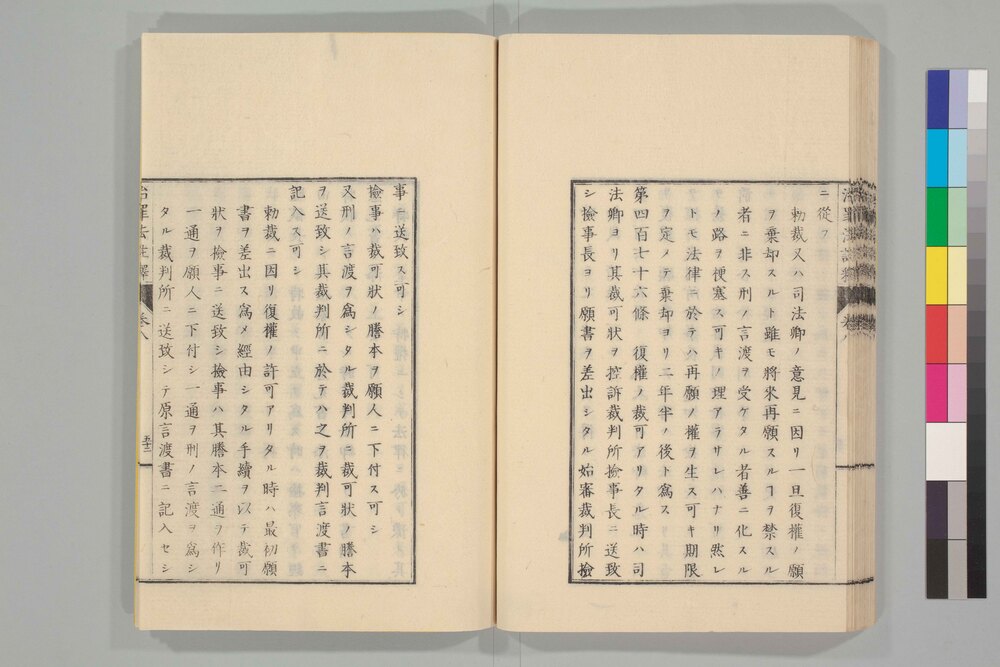 ニ從フ
勅裁又ハ司法卿ノ意見ニ因リ一旦復權ノ願
ヲ棄却スルト雖モ將來再願スルヿヲ禁スル
者ニ非ス刑ノ言渡ヲ受ケタル者善ニ化スル
ノ路ヲ梗塞ス可キノ理アラサレハナリ然レ
トモ法律ニ於テハ再願ノ權ヲ生ス可キ期限
ヲ定メテ棄却ヨリ二年半ノ後ト爲ス
第四百七十六條 復權ノ裁可アリタル時ハ司
法卿ヨリ其裁可狀ヲ控訴裁判所檢事長ニ送致
シ檢事長ヨリ願書ヲ差出シタル始審裁判所檢
事ニ送致ス可シ
檢事ハ裁可狀ノ謄本ヲ願人ニ下付ス可シ
又刑ノ言渡ヲ爲シタル裁判所ニ裁可狀ノ謄本
ヲ送致シ其裁判所ニ於テハ之ヲ裁判言渡書ニ
記入ス可シ
勅裁ニ因リ復權ノ許可アリタル時ハ最初願
書ヲ差出ス爲メ經由シタル手續ヲ以テ裁可
狀ヲ檢事ニ送致シ檢事ハ其謄本二通ヲ作リ
一通ヲ願人ニ下付シ一通ヲ刑ノ言渡ヲ爲シ
タル裁判所ニ送致シテ原言渡書ニ記入セシ
治罪法註釋 卷八 五十二